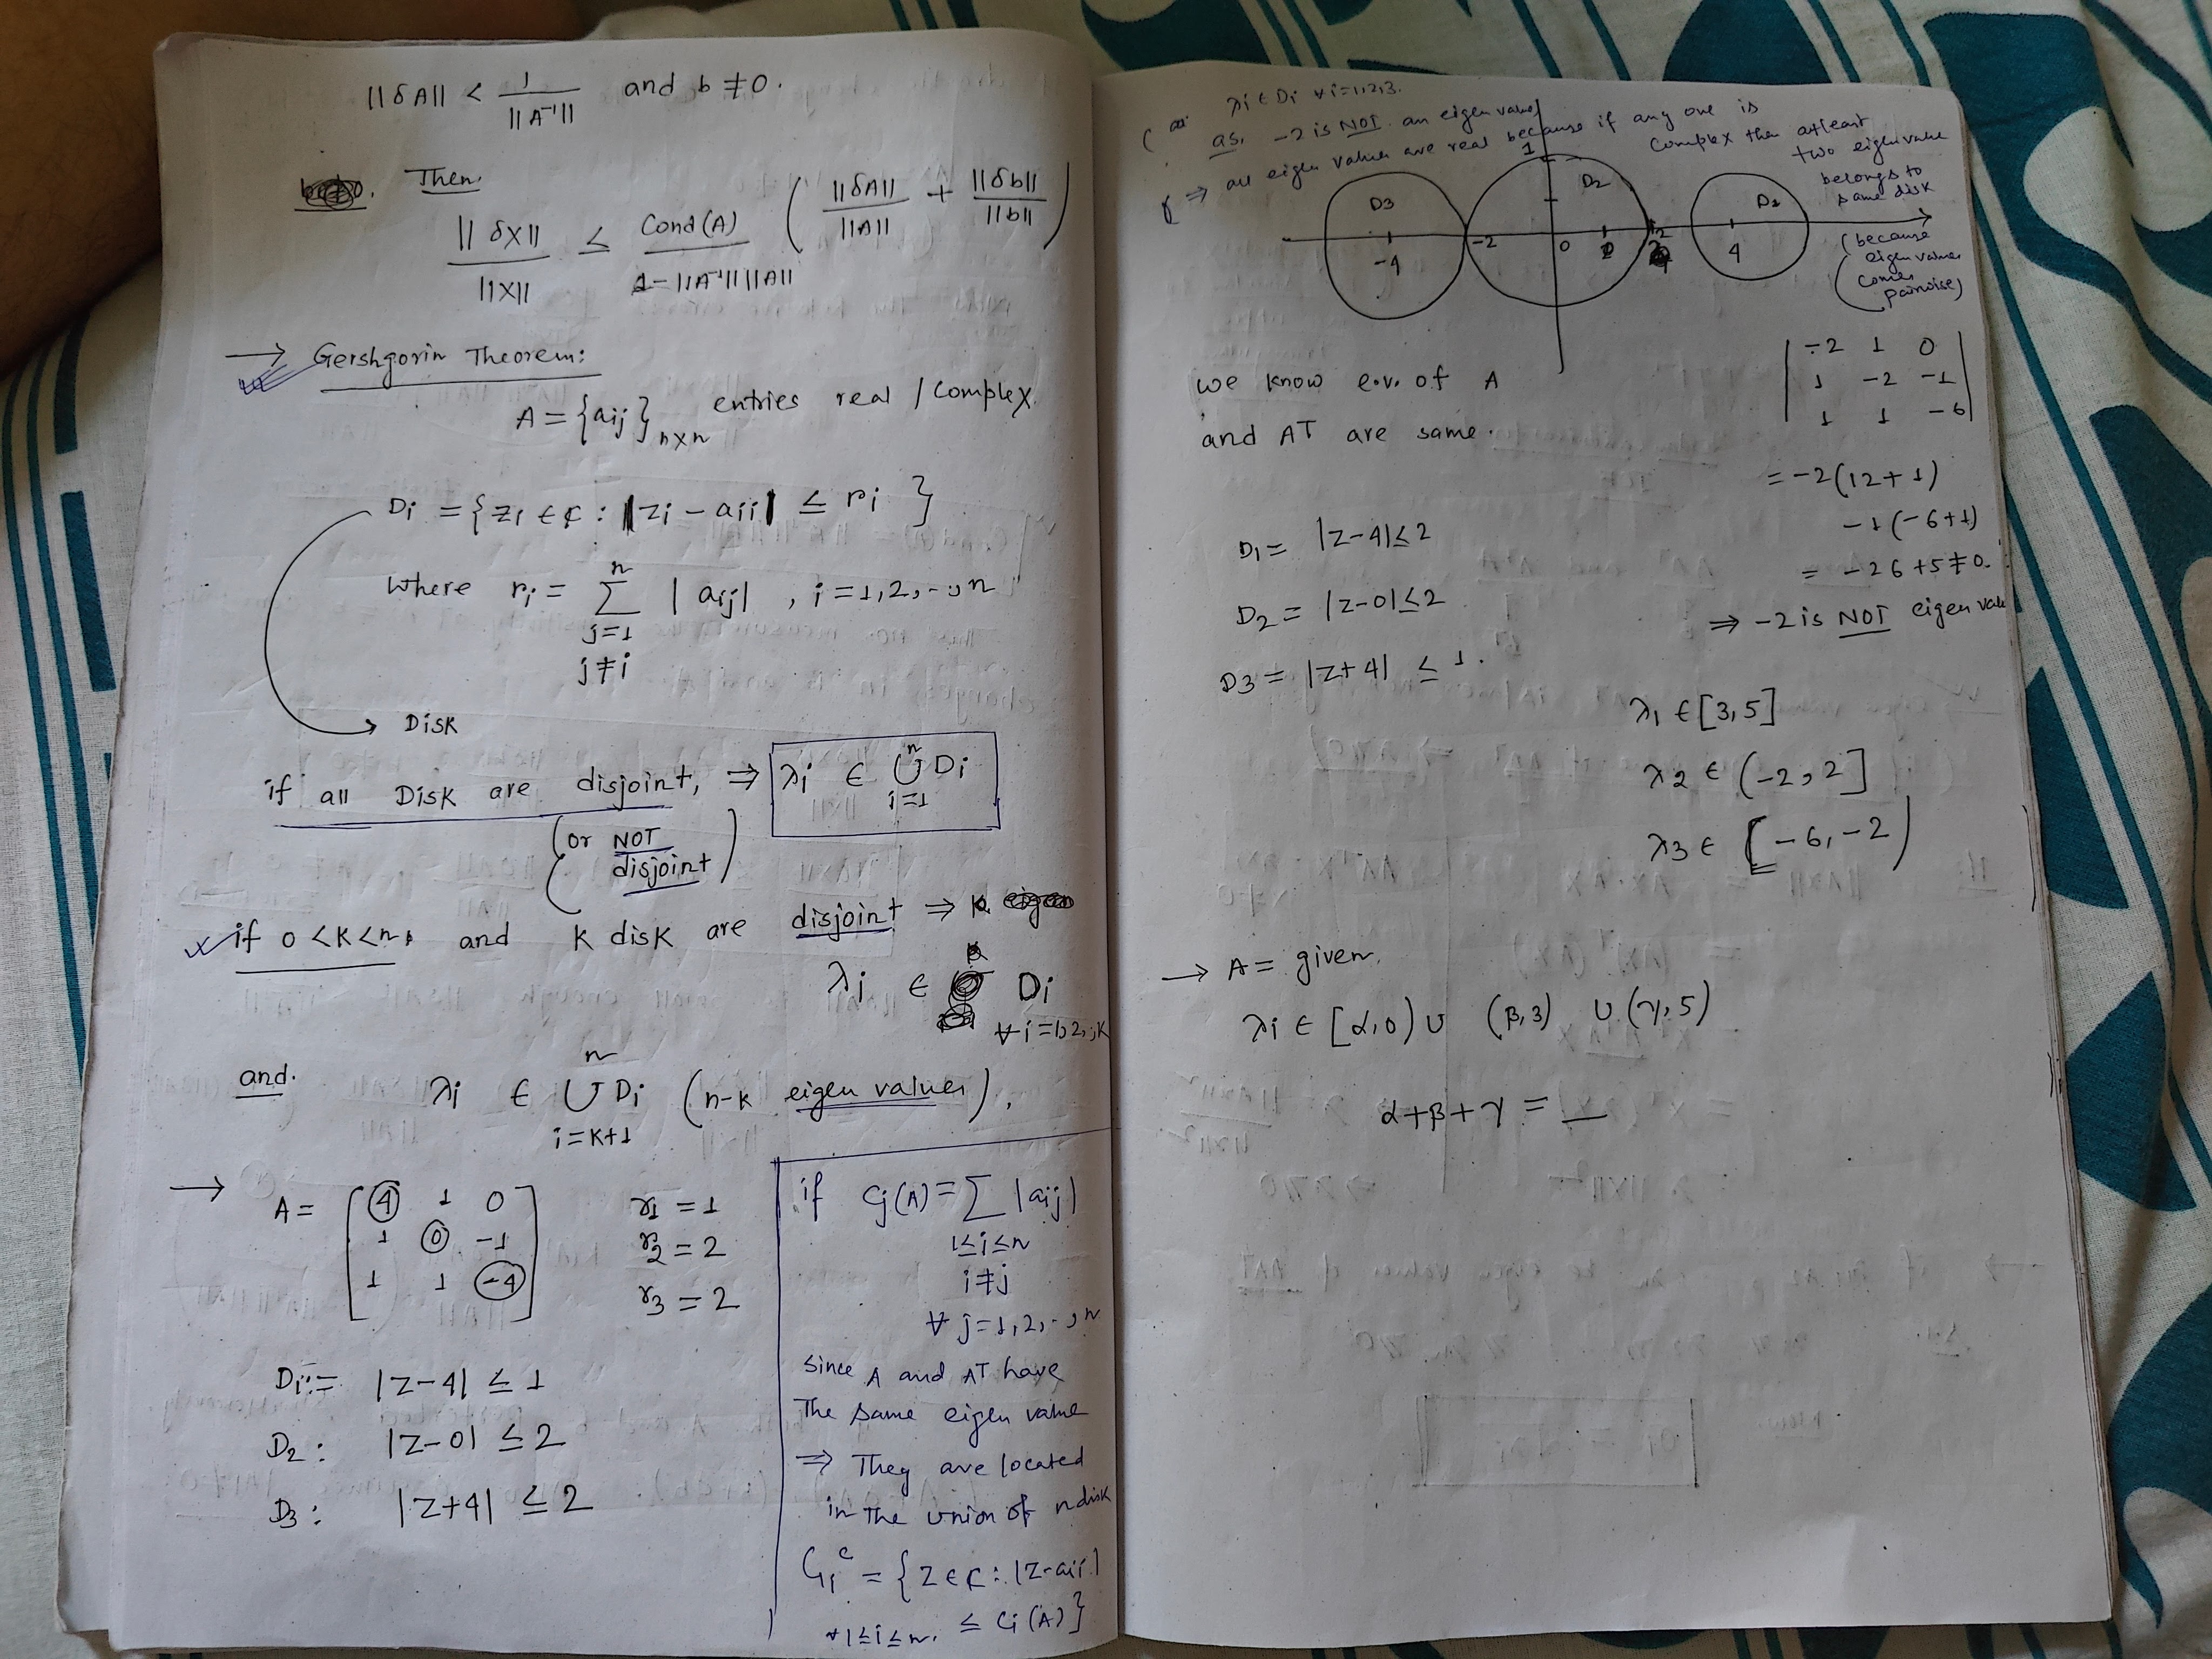 ||δA|| < 1 / ||A⁻¹|| and b ≠ 0.
Then.
||δX|| / ||X|| ≤ Cond(A) / 1-||A⁻¹|| ||A|| ( ||δA|| / ||A|| + ||δb|| / ||b|| )
→ Gershgorin Theorem:
A = {aij}n×n entries real / Complex.
Di = {zi ∈ ₵ : |zi - aii| ≤ ri }
Where ri = Σ |aij| , i = 1,2,--,n
n
j=1
j≠i
Disk
if all Disk are disjoint, ⇒ λi ∈ ∪ Di
n
i=1
(or NOT
disjoint)
if 0 <K<n, and K disk are disjoint ⇒
λi ∈ Di
∀ i = 1,2,..,k
and.
λi ∈ ∪ Di (n-k eigen values).
n
i=k+1
→ A = [ 4 1 0
1 0 -1
1 1 -4 ]
r1 = 1
r2 = 2
r3 = 2
D1:= |z-4| ≤ 1
D2: |z-0| ≤ 2
D3: |z+4| ≤ 2
if Cj(A) = Σ |aij|
1≤i≤n
i≠j
∀ j=1,2,--,n
Since A and AT have
The same eigen value
⇒ They are located
in the union of n disk
Gi^c = {z∈₵: |z-aii|
∀ 1≤i≤n. ≤ Ci(A)}
λi ∈ Di ∀ i=1,2,3.
as, -2 is NOT an eigen value
⇒ all eigen values are real because if any one is
Complex then atleast
two eigenvalue
belongs to
same disk
(because
eigen values
comes
pairwise)
1
D3 D2 D1
-4 -2 0 2 4
we know e.v. of A
and AT are same.
| -2 1 0 |
| 1 -2 -1 |
| 1 1 -6 |
= -2(12+1)
-1(-6+1)
= -26+5≠0.
⇒ -2 is NOT eigen value
D1 = |z-4| ≤ 2
D2 = |z-0| ≤ 2
D3 = |z+4| ≤ 1.
λ1 ∈ [3,5]
λ2 ∈ (-2,2]
λ3 ∈ [-6,-2)
→ A = given.
λi ∈ [α,0) ∪ (β,3) ∪ (γ,5)
α+β+γ = __